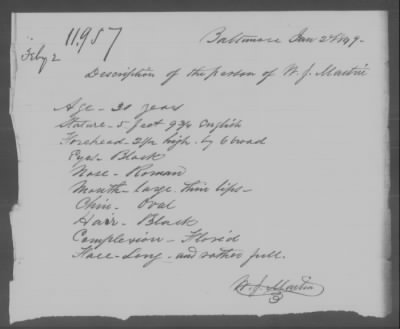 11.957
Baltimore Jan 2d 1849-
Feby 2
Description of the person of W. J. Martin
Age - 30 years
Stature - 5 feet 9¾ English
Forehead - 2½ high - by 6 broad
Eyes - Black
Nose - Roman
Mouth - large - thin lips -
Chin - Oval
Hair - Black
Complexion - Florid
Face - Long - and rather full.
W. J. Martin